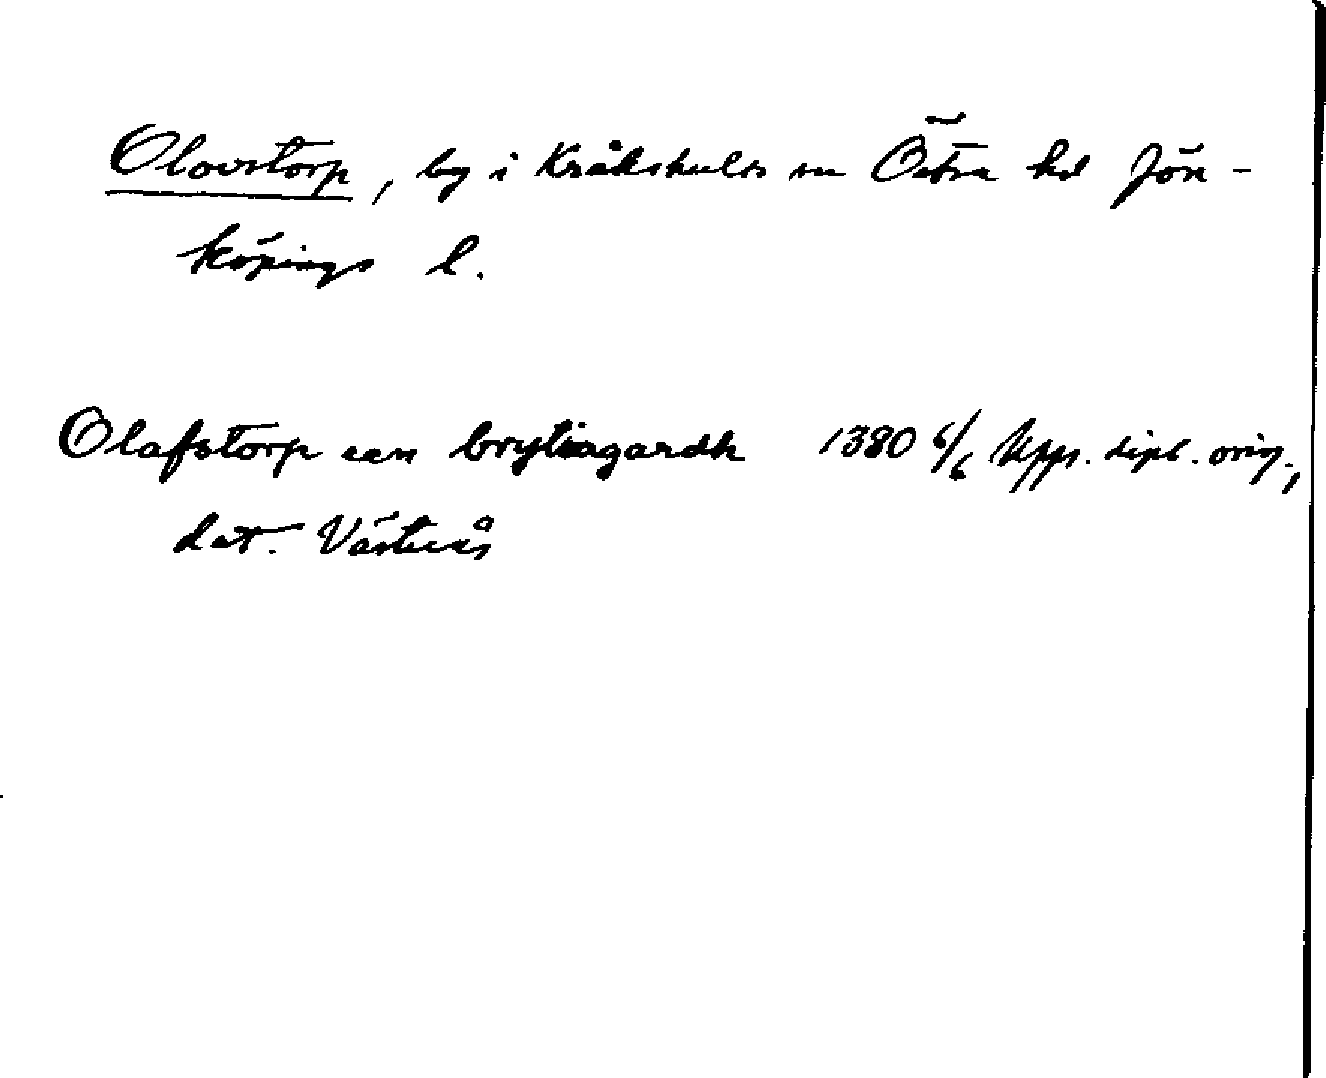 Olovstorp, by i Kråkshults sn Östra hd Jön-
köpings l.
Olafstorp een brytiagardh 1380 6/6 Upps. dipl. orig.,
dat. Västerås